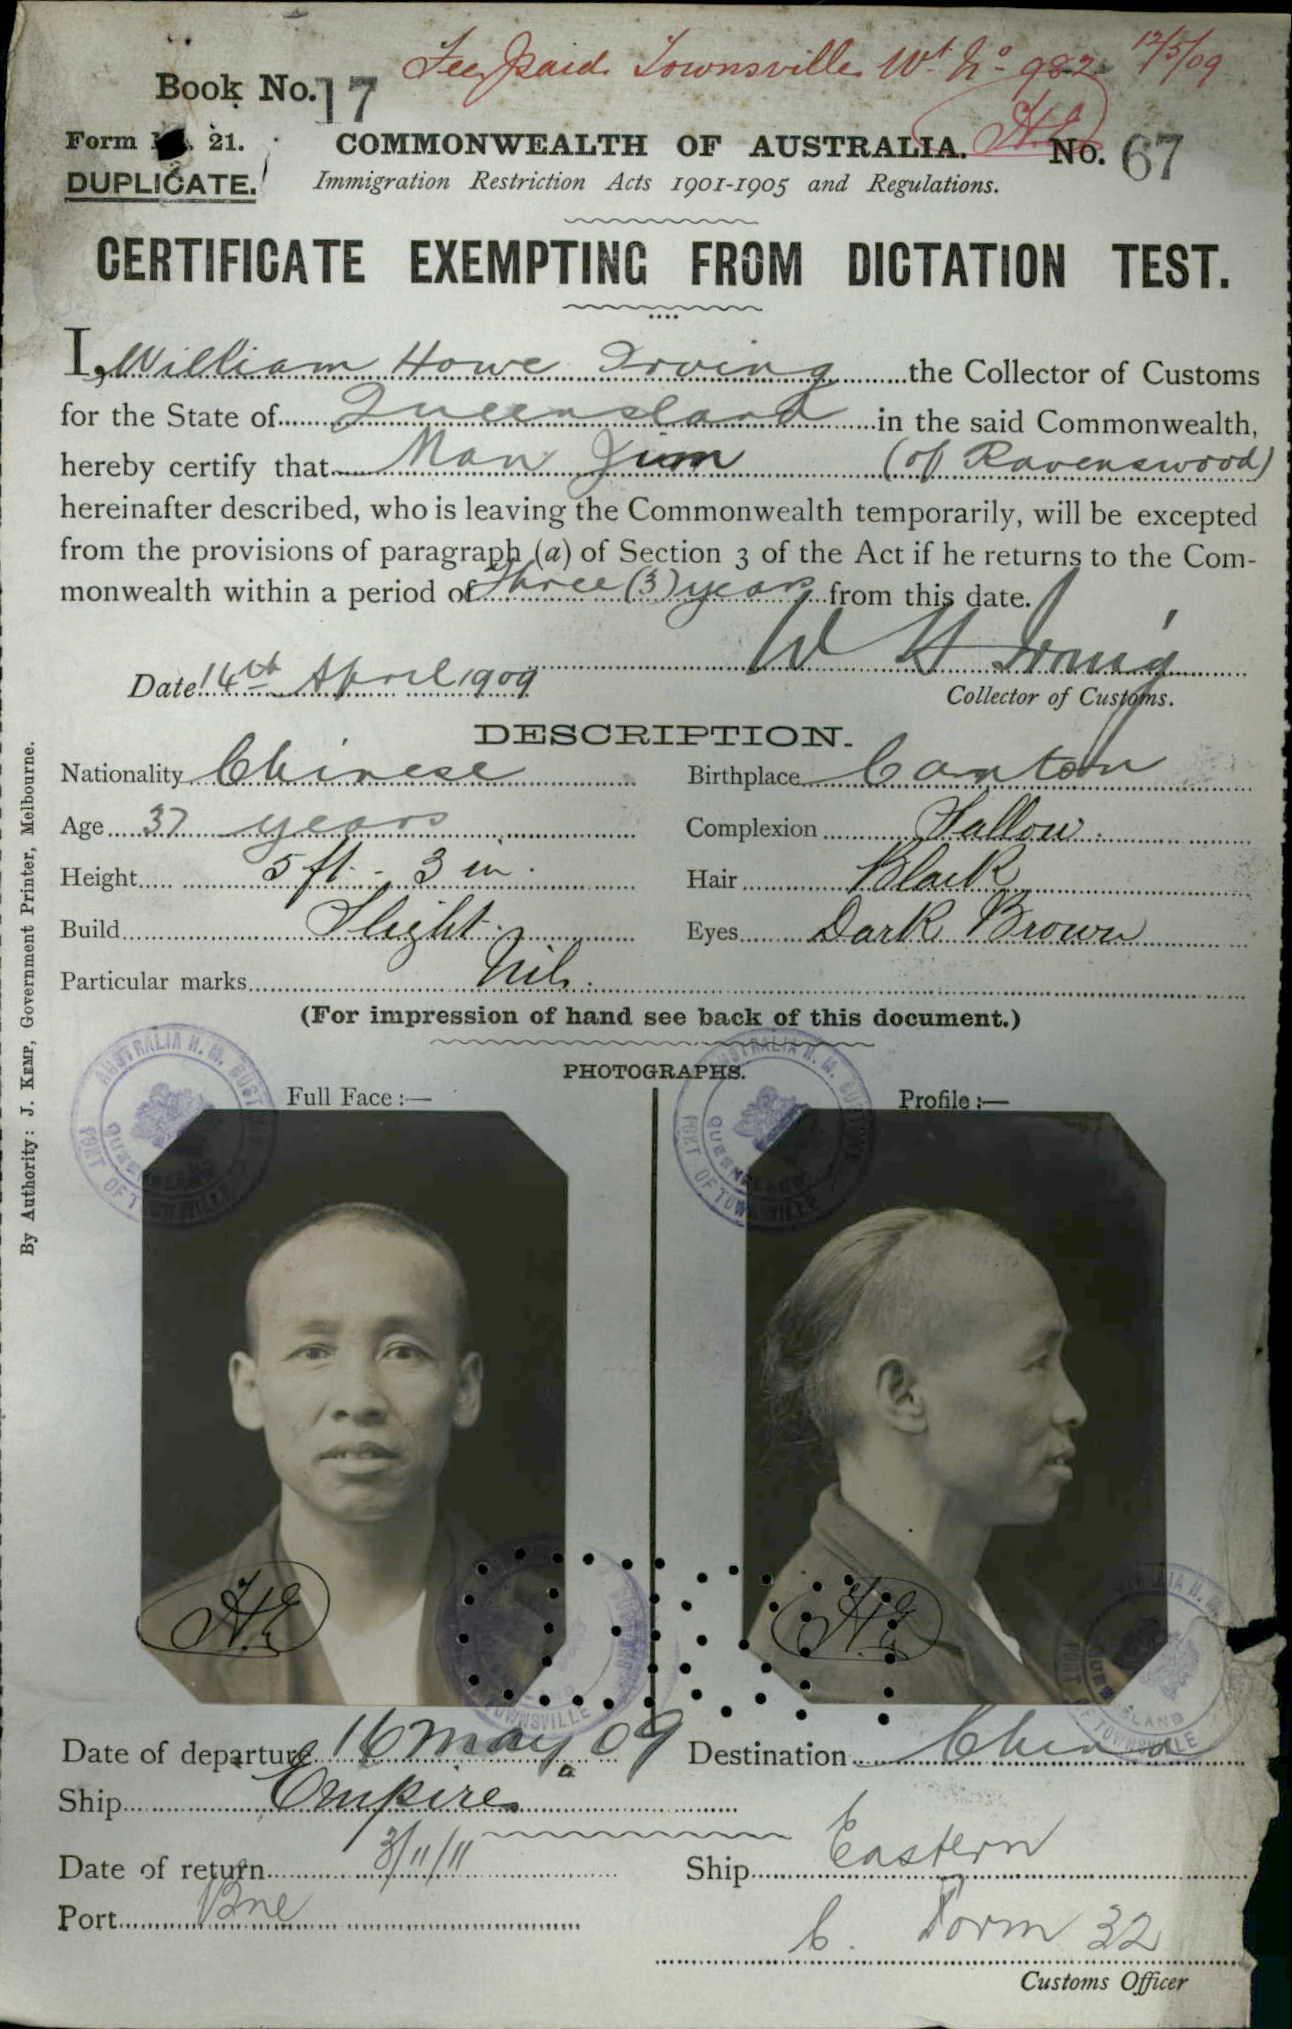 Fee Paid. Townsville Wt. No. 982 12/5/09
H.E.
Book No. 17
Form 21.
COMMONWEALTH OF AUSTRALIA.
No. 67
DUPLICATE.
Immigration Restriction Acts 1901-1905 and Regulations.
CERTIFICATE EXEMPTING FROM DICTATION TEST.
I, William Howe Irving the Collector of Customs
for the State of Queensland in the said Commonwealth,
hereby certify that Man Jim (of Ravenswood)
hereinafter described, who is leaving the Commonwealth temporarily, will be excepted
from the provisions of paragraph (a) of Section 3 of the Act if he returns to the Com-
monwealth within a period of Three (3) years from this date.
W H Irving
Date 14th April 1909
Collector of Customs.
DESCRIPTION.
Nationality Chinese Birthplace Canton
Age 37 years Complexion Sallow.
Height 5 ft - 3 in. Hair Black
Build Slight. Eyes Dark Brown
Particular marks Nil.
(For impression of hand see back of this document.)
PHOTOGRAPHS.
Full Face :— Profile :—
AUSTRALIA H. M. CUSTOMS
QUEENSLAND
PORT OF TOWNSVILLE
AUSTRALIA H. M. CUSTOMS
QUEENSLAND
PORT OF TOWNSVILLE
H.E.
H.E.
TOWNSVILLE
PORT OF TOWNSVILLE
QUEENSLAND
Date of departure 16 May. 09 Destination China
Ship Empire
Date of return 3/11/11 Ship Eastern
Port Bne
C. Form 32
Customs Officer
By Authority: J. KEMP, Government Printer, Melbourne.